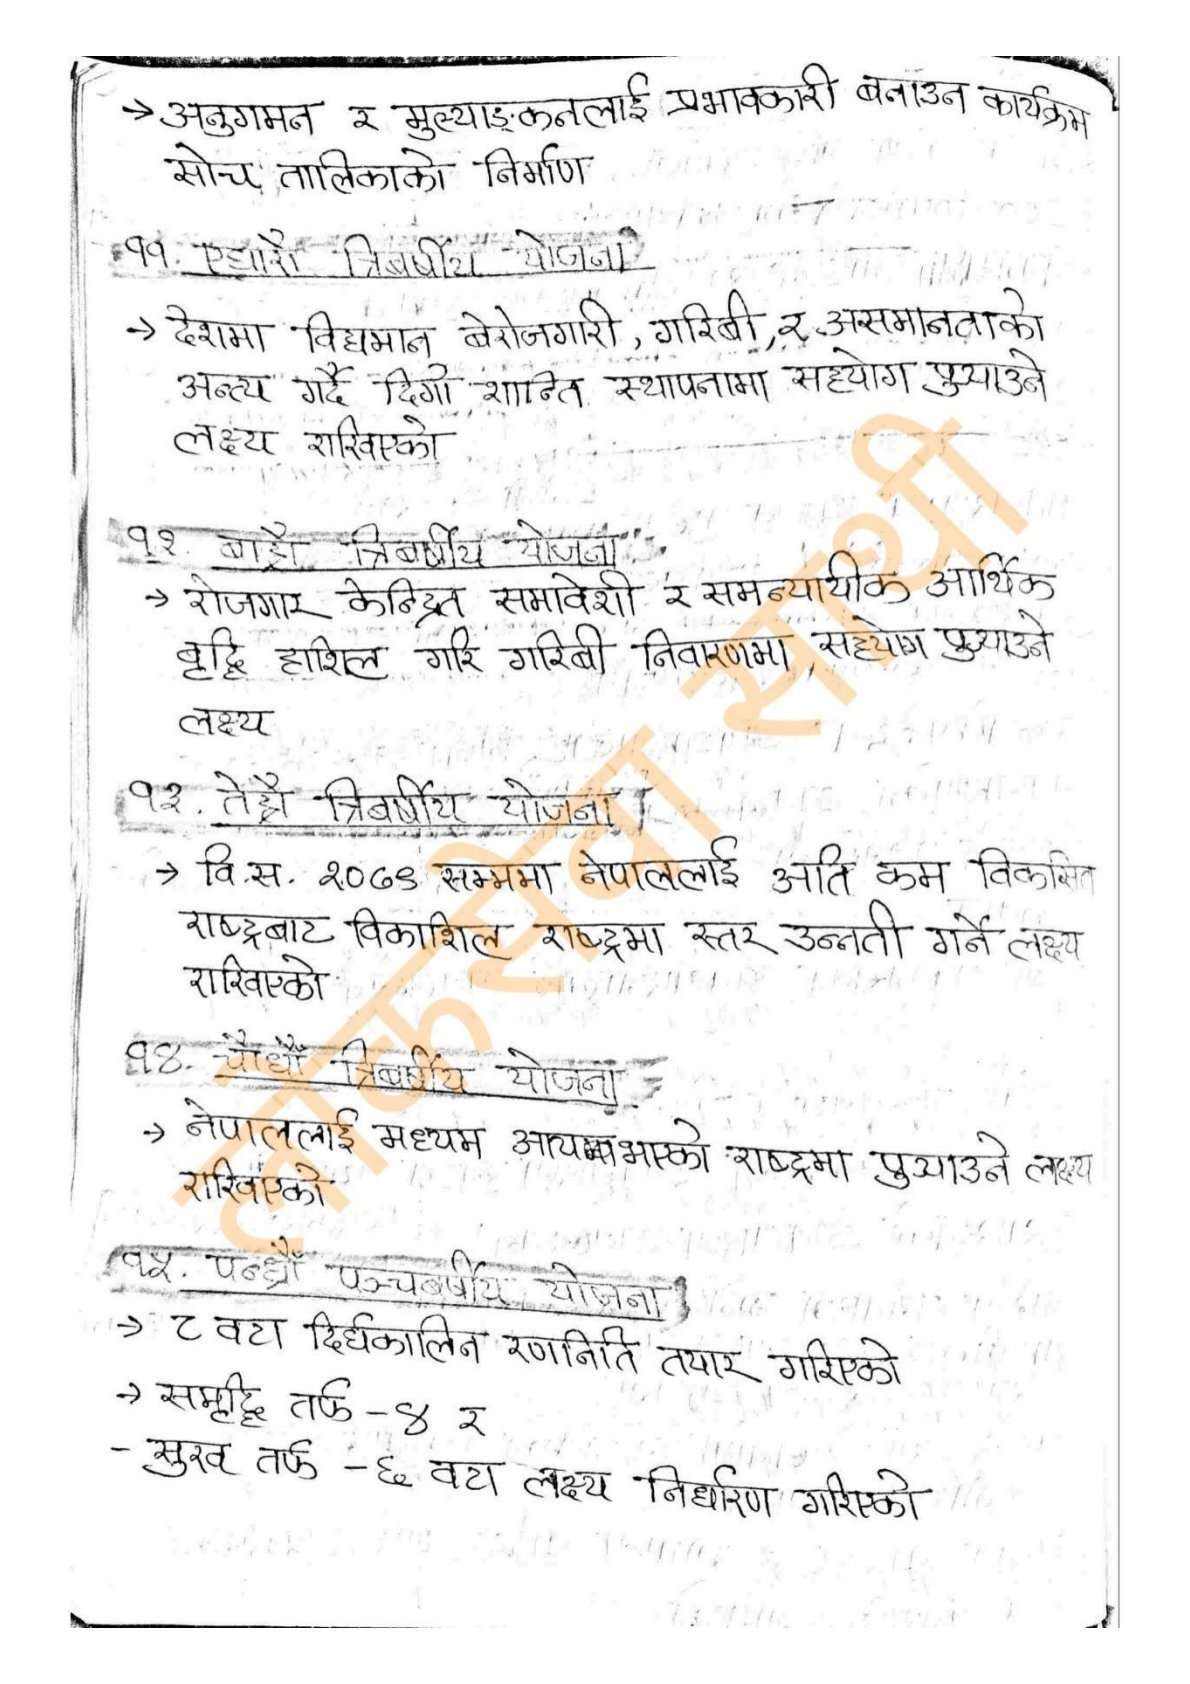 → अनुगमन र मुल्याङ्कनलाई प्रभावकारी बनाउन कार्यक्रम
सोच तालिकाको निर्माण
११. एघारौ त्रिबर्षीय योजना
→ देशमा विद्यमान बेरोजगारी, गरिबी, र असमानताको
अन्त्य गर्दै दिगो शान्ति स्थापनामा सहयोग पुर्‍याउने
लक्ष्य राखिएको
१२. बाह्रौ त्रिबर्षीय योजना
→ रोजगार केन्द्रित समावेशी र समन्यायीक आर्थिक
बृद्धि हाशिल गरि गरिबी निवारणमा सहयोग पुर्‍याउने
लक्ष्य
१३. तेह्रौ त्रिबर्षीय योजना
→ वि.स. २०७९ सम्ममा नेपाललाई अति कम विकसित
राष्ट्रबाट विकाशिल राष्ट्रमा स्तर उन्नती गर्ने लक्ष्य
राखिएको
१४. चौधौँ त्रिबर्षीय योजना
→ नेपाललाई मध्यम आयमाभएको राष्ट्रमा पुर्‍याउने लक्ष्य
राखिएको
१५. पन्ध्रौँ पञ्चबर्षीय योजना
→ ८ वटा दिर्घकालिन रणनिति तयार गरिएको
→ समृद्धि तर्फ - ४ र
- सुख तर्फ - ६ वटा लक्ष्य निर्धारण गरिएको
लोकसेवा साथी